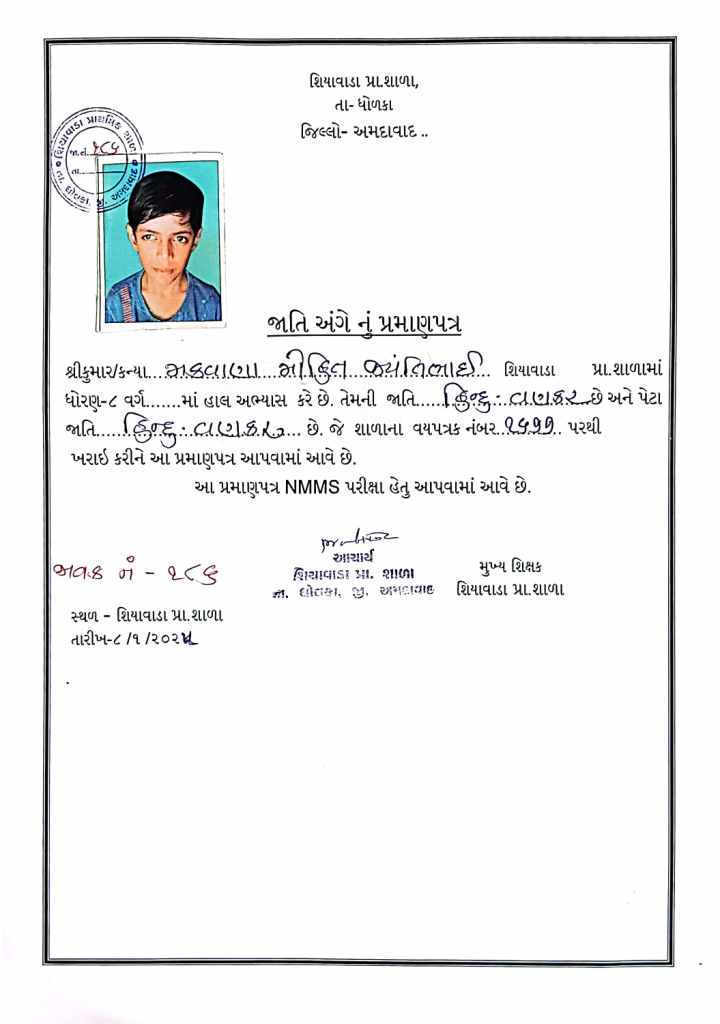 શિયાવાડા પ્રા.શાળા,
તા- ધોળકા
જિલ્લો- અમદાવાદ ..
શિયાવાડા પ્રાથમિક શાળા
જા.નં.
તા.
તા. ધોલકા, જી. અમદાવાદ
જાતિ અંગે નું પ્રમાણપત્ર
શ્રીકુમાર/કન્યા...મકવાણા...મોહિત...જયંતિભાઈ... શિયાવાડા પ્રા.શાળામાં
ધોરણ-૮ વર્ગ.......માં હાલ અભ્યાસ કરે છે. તેમની જાતિ.....હિન્દુ - વણકર છે અને પેટા
જાતિ.....હિન્દુ - વણકર.... છે. જે શાળાના વયપત્રક નંબર..૨૫૧૧.. પરથી
ખરાઇ કરીને આ પ્રમાણપત્ર આપવામાં આવે છે.
આ પ્રમાણપત્ર NMMS પરીક્ષા હેતુ આપવામાં આવે છે.
જાવક નં - ૨૮૬
આચાર્ય
શિયાવાડા પ્રા. શાળા
તા. ધોલકા, જી. અમદાવાદ
મુખ્ય શિક્ષક
શિયાવાડા પ્રા.શાળા
સ્થળ - શિયાવાડા પ્રા.શાળા
તારીખ-૮ /૧ /૨૦૨૫